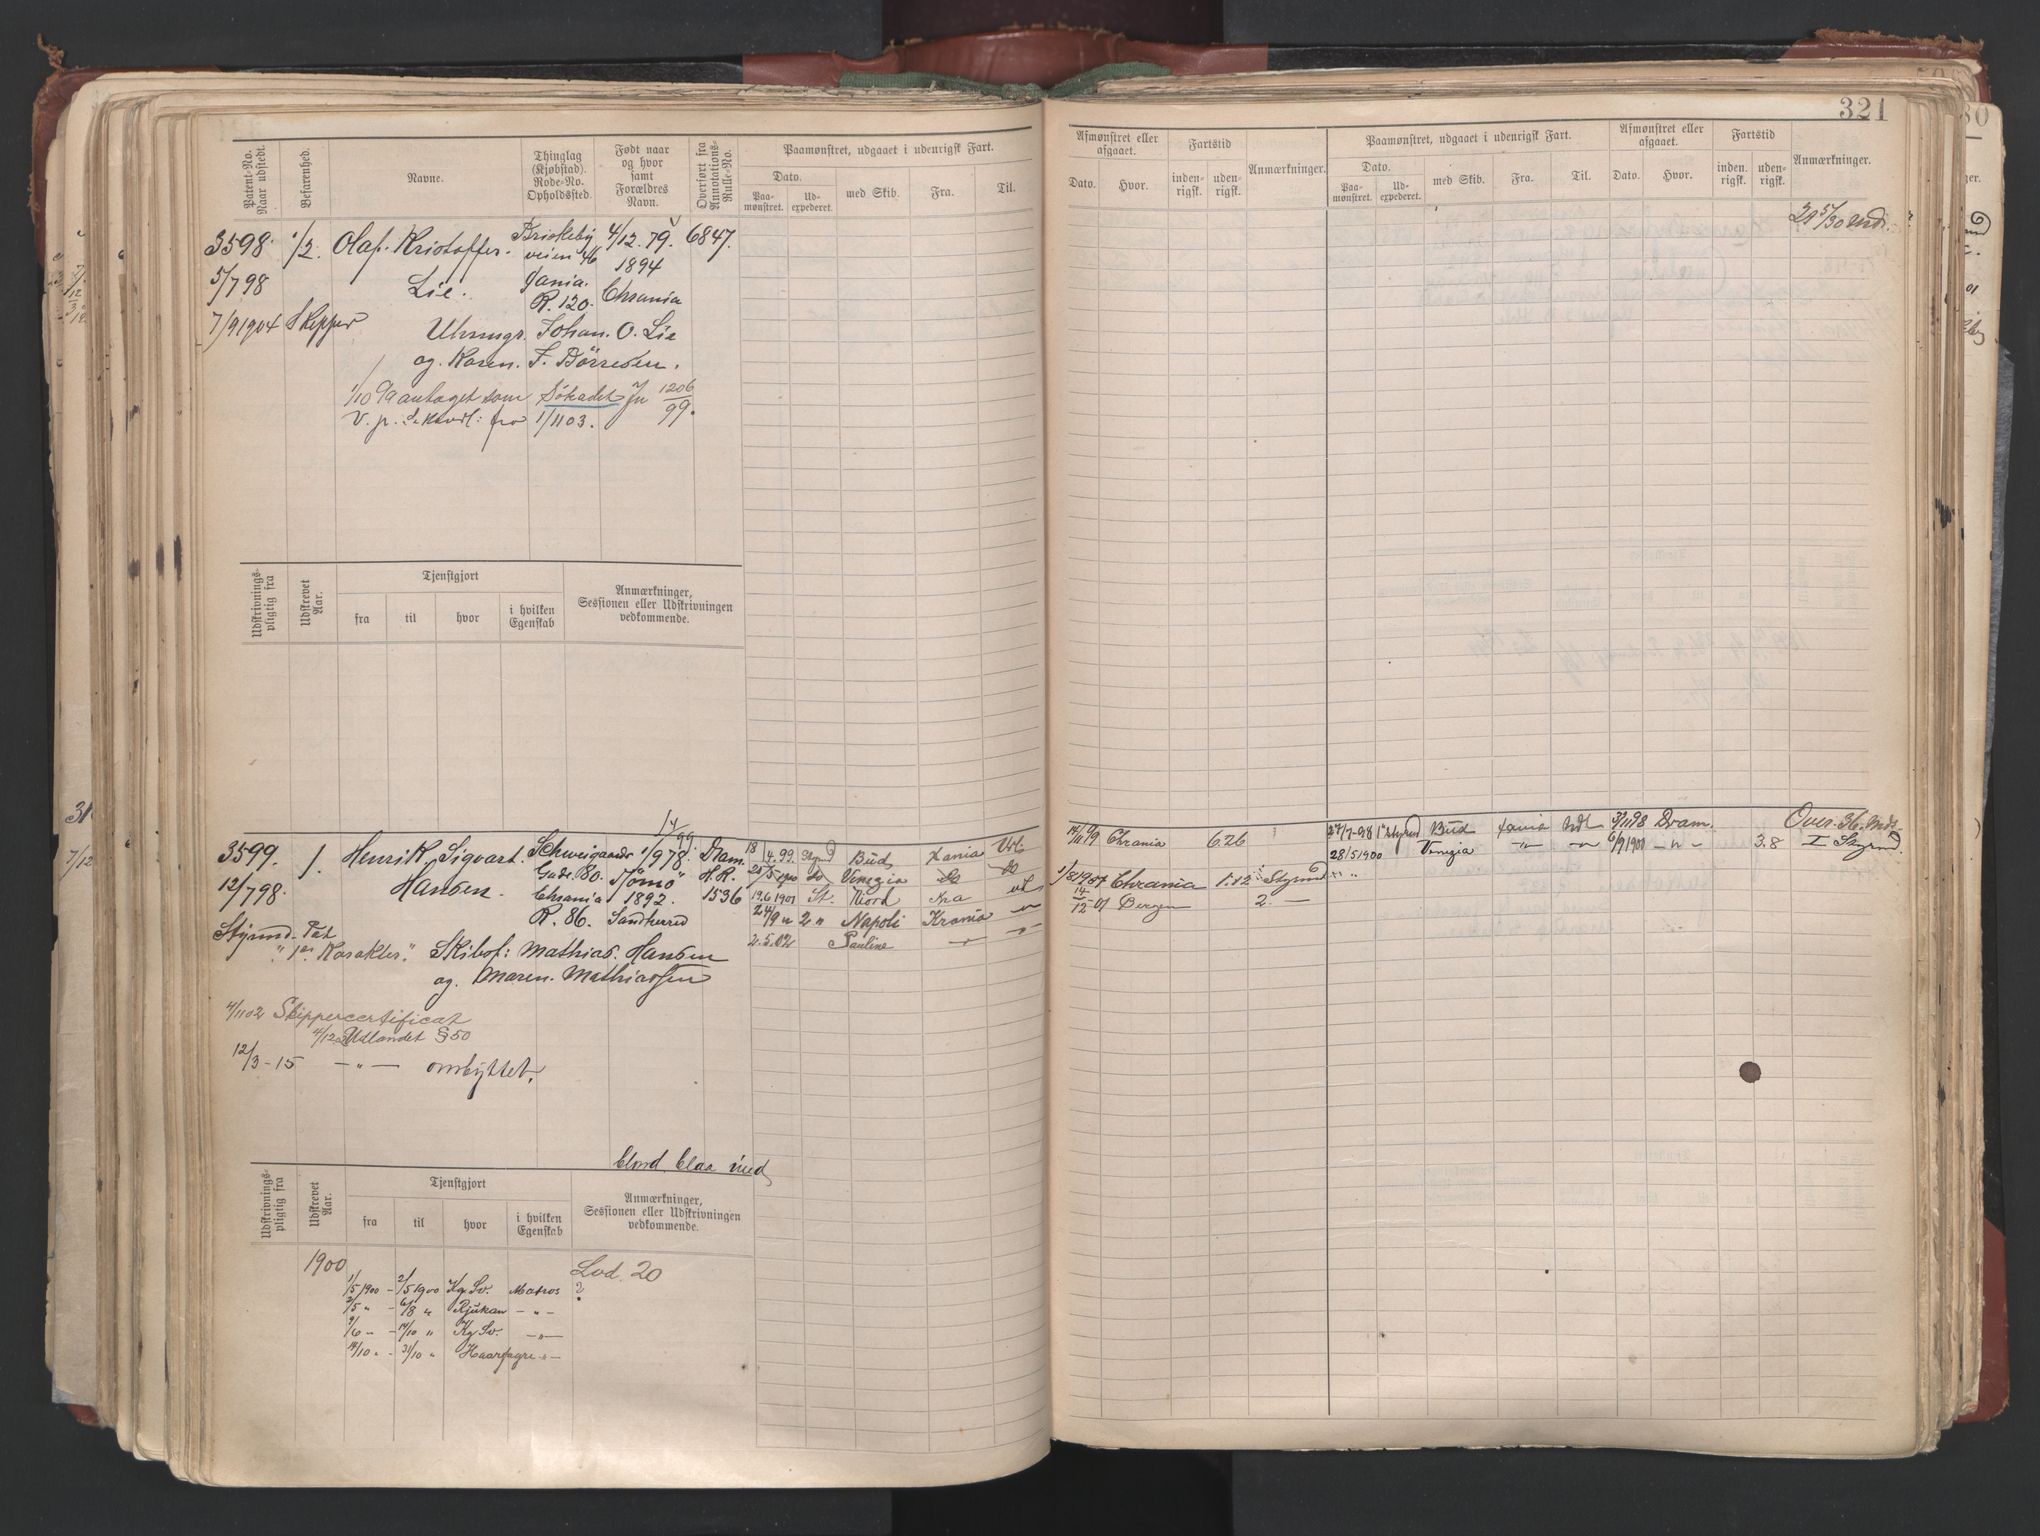 321
Patent-No. Naar udstedt.
Befarenhed.
Navne.
Thinglag (Kjøbstad). Rode-No. Opholdssted.
Født naar og hvor samt Forældres Navn.
Overført fra Annotations-Rulle-No.
Paamønstret, udgaaet i udenrigsk Fart.
Dato.
Paamønstret.
Udexpederet.
med Skib.
Fra.
Til.
Afmønstret eller afgaaet.
Dato.
Hvor.
Fartstid
indenrigsk.
udenrigsk.
Anmærkninger.
Paamønstret, udgaaet i udenrigsk Fart.
Dato.
Paamønstret.
Udexpederet.
med Skib.
Fra.
Til.
Afmønstret eller afgaaet.
Dato.
Hvor.
Fartstid
indenrigsk.
udenrigsk.
Anmærkninger.
3598. 1/2. Olaf. Kristoffer. Briskeby 4/12. 79. 6847.
veien 46 1894
5/7 98 Lie. Xania. Chrania
R. 120.
7/9 1904 Skipper Uhrmgr. Johan. O. Lie
og. Karen. F. Børresen.
1/10 99 antaget som Søkadet Jn 1206/99.
fra 1/11 03.
21 5/30 Mdr.
Udskrivningspligtig fra
Udskrevet Aar.
Tjenstgjort
fra
til
hvor
i hvilken Egenskab
Anmærkninger, Sessionen eller Udskrivningen vedkommende.
3599. 1. Henrik. Sigvart. Schweigaards 1/9 78. Dram.
Gade. 80. Tjømø H.R.
12/7 98. Hansen. Chrania 1892. 1536
R. 86. Sandherred
Styrmd. Pat
"1ste Karakter" Skibsf: Mathias. Hansen
og. Maren. Mathiassen
4/11 02 Skippercertificat
Udlandet §50
12/3-15 —"— ombyttet.
blond blaa mid
18/4.99. Styrmd Bud Xania Udl
do Venezia do do
19.6 1901 St. Njord Kra
24/9 " 2 " Napoli Krania
2.5.02 Pauline
Chrania 6.26
1/8 1901 Chrania 1.12 Styrmd
14/12-01 Bergen 2. —
27/7-98 1ste Styrmd Bud Xania Udl 3/11 98 Dram. Over 36 Mdr.
28/5 1900 Venezia —"— —"— 6/9 1900 —"— 3.8 I Styrmd
Udskrivningspligtig fra
Udskrevet Aar.
Tjenstgjort
fra
til
hvor
i hvilken Egenskab
Anmærkninger, Sessionen eller Udskrivningen vedkommende.
1900 Lod. 20
1/5 1900 - 2/5 1900 Kg Sv. Matros ?
2/5 " - 6/8 " Rjukan —"—
9/6 " - 14/10 " Kg Sv. —"—
14/10 " - 31/10 " Haarfagre —"—